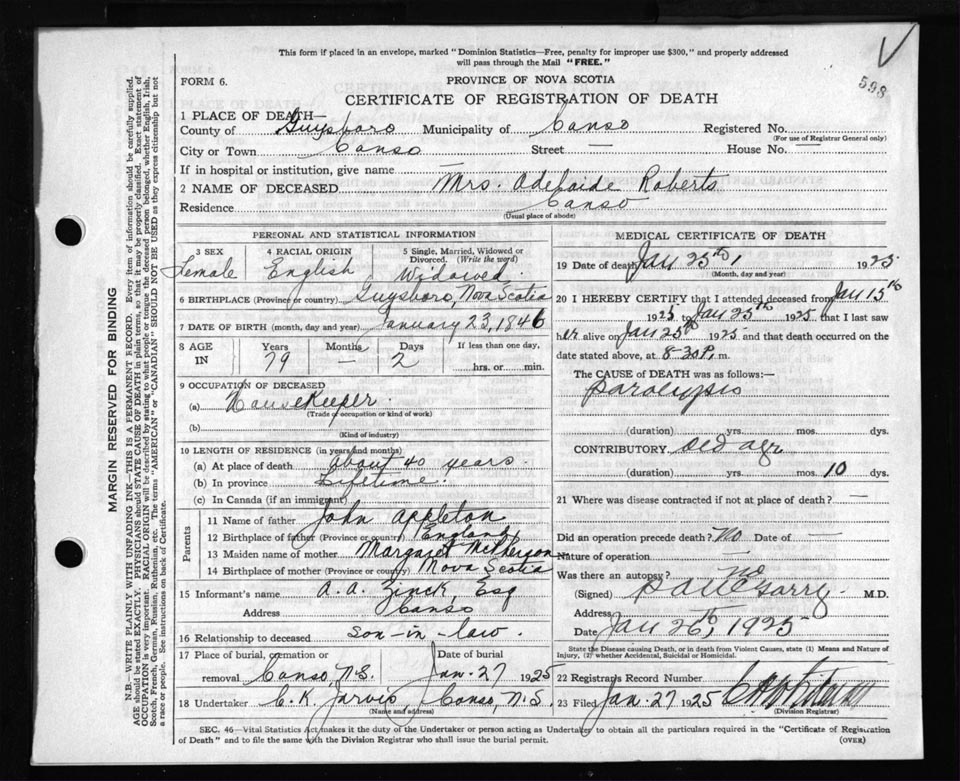 This form if placed in an envelope, marked "Dominion Statistics—Free, penalty for improper use $300," and properly addressed
will pass through the Mail "FREE."
598
FORM 6.
PROVINCE OF NOVA SCOTIA
CERTIFICATE OF REGISTRATION OF DEATH
1 PLACE OF DEATH—
County of Guysboro Municipality of Canso Registered No.
(For use of Registrar General only)
City or Town Canso Street — House No. —
If in hospital or institution, give name —
2 NAME OF DECEASED Mrs. Adelaide Roberts
Residence Canso
(Usual place of abode)
PERSONAL AND STATISTICAL INFORMATION
3 SEX 4 RACIAL ORIGIN 5 Single, Married, Widowed or
Divorced. (Write the word)
Female English Widowed.
6 BIRTHPLACE (Province or country) Guysboro, Nova Scotia
7 DATE OF BIRTH (month, day and year) January 23, 1846
8 AGE IN Years Months Days If less than one day,
79 — 2 hrs. or min.
9 OCCUPATION OF DECEASED
(a) Housekeeper.
(Trade or occupation or kind of work)
(b)
(Kind of industry)
10 LENGTH OF RESIDENCE (in years and months)
(a) At place of death about 40 years.
(b) In province Lifetime.
(c) In Canada (if an immigrant)
Parents
11 Name of father John Appleton
12 Birthplace of father (Province or country) England
13 Maiden name of mother Margaret McPherson
14 Birthplace of mother (Province or country) Nova Scotia
15 Informant's name A. A. Zinck, Esq
Address Canso
16 Relationship to deceased son-in-law.
17 Place of burial, cremation or Date of burial
removal Canso N.S. Jan. 27 1925
18 Undertaker C. K. Jarvis Canso, N.S.
(Name and address)
MEDICAL CERTIFICATE OF DEATH
19 Date of death Jan 25th 1925
(Month, day and year)
20 I HEREBY CERTIFY that I attended deceased from Jan 15th
1925 to Jan 25th 1925 that I last saw
her alive on Jan 25th 1925 and that death occurred on the
date stated above, at 8-30 P. m.
The CAUSE of DEATH was as follows:—
Paralypis
(duration) yrs. mos. dys.
CONTRIBUTORY Old age
(duration) yrs. mos. 10 dys.
21 Where was disease contracted if not at place of death? —
Did an operation precede death? No Date of —
Nature of operation —
Was there an autopsy? no
(Signed) M.D.
Address
Date Jan 26th, 1925
State the Disease causing Death, or in death from Violent Causes, state (1) Means and Nature of
Injury, (2) whether Accidental, Suicidal or Homicidal.
22 Registrar's Record Number
23 Filed Jan. 27 1925
(Division Registrar)
SEC. 46—Vital Statistics Act makes it the duty of the Undertaker or person acting as Undertaker to obtain all the particulars required in the "Certificate of Registration
of Death" and to file the same with the Division Registrar who shall issue the burial permit. (OVER)
MARGIN RESERVED FOR BINDING
N.B.—WRITE PLAINLY WITH UNFADING INK—THIS IS A PERMANENT RECORD. Every item of information should be carefully supplied.
AGE should be stated EXACTLY. PHYSICIANS should STATE CAUSE OF DEATH in plain terms, so that it may be properly classified. Exact statement of
OCCUPATION is very important. RACIAL ORIGIN will be described by stating to what people or tongue the deceased person belonged, whether English, Irish,
Scotch, French, German, Russian, Ruthenian, etc. The terms "AMERICAN" or "CANADIAN" SHOULD NOT BE USED as they express citizenship but not
a race or people. See instructions on back of Certificate.